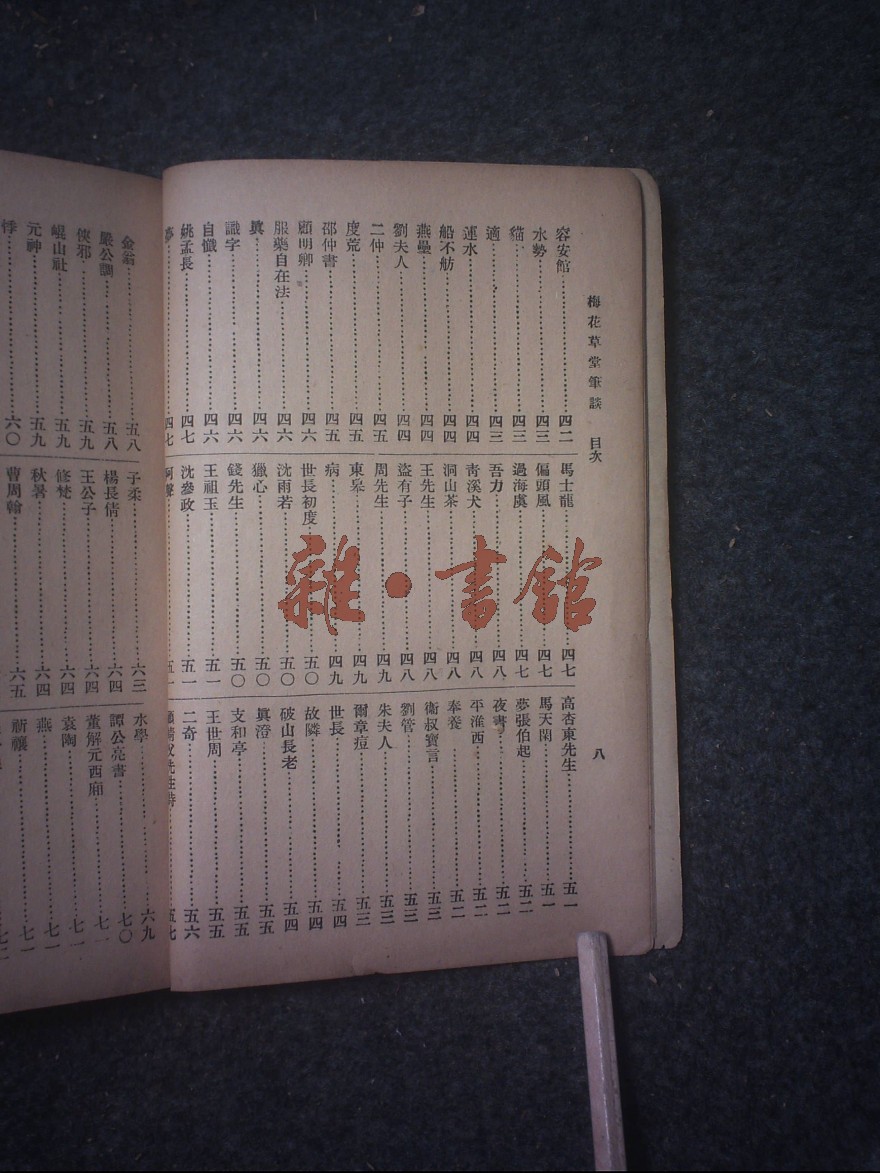 梅花草堂筆談 目次 八
容安館 四二
水勢 四三
貓 四三
適 四三
連水 四四
船不舫 四四
燕壘 四四
劉夫人 四四
二仲 四五
度荒 四五
邵仲書 四五
顧明卿 四六
服藥自在法 四六
眞 四六
識字 四六
自懺 四六
姚孟長 四七
夢 四七
馬士龍 四七
偏頭風 四七
過海虞 四七
吾力 四八
靑溪犬 四八
洞山茶 四八
王先生 四八
盜有子 四八
周先生 四九
東皋 四九
病 四九
世長初度 五〇
沈雨若 五〇
獵心 五〇
錢先生 五〇
王祖玉 五一
沈參政 五一
五一
高杏東先生 五一
馬天閑 五一
夢張伯起 五二
夜 五二
平淮西 五二
奉養 五二
衞叔寶言 五三
劉管 五三
朱夫人 五三
爾章痘 五三
世長 五四
故隣 五四
破山長老 五四
眞澄 五五
支和亭 五五
王世周 五五
二奇 五六
五七
金翁 五八
嚴公調 五八
俠邪 五九
崐山社 五九
元神 五九
悸 六〇
子柔 六三
楊長倩 六四
王公子 六四
修梵 六四
秋暑 六四
曹周翰 六五
水學 六九
譚公亮書 七〇
董解元西廂 七一
袁陶 七一
燕 七一
祈禳 七一
七二
雜·書館